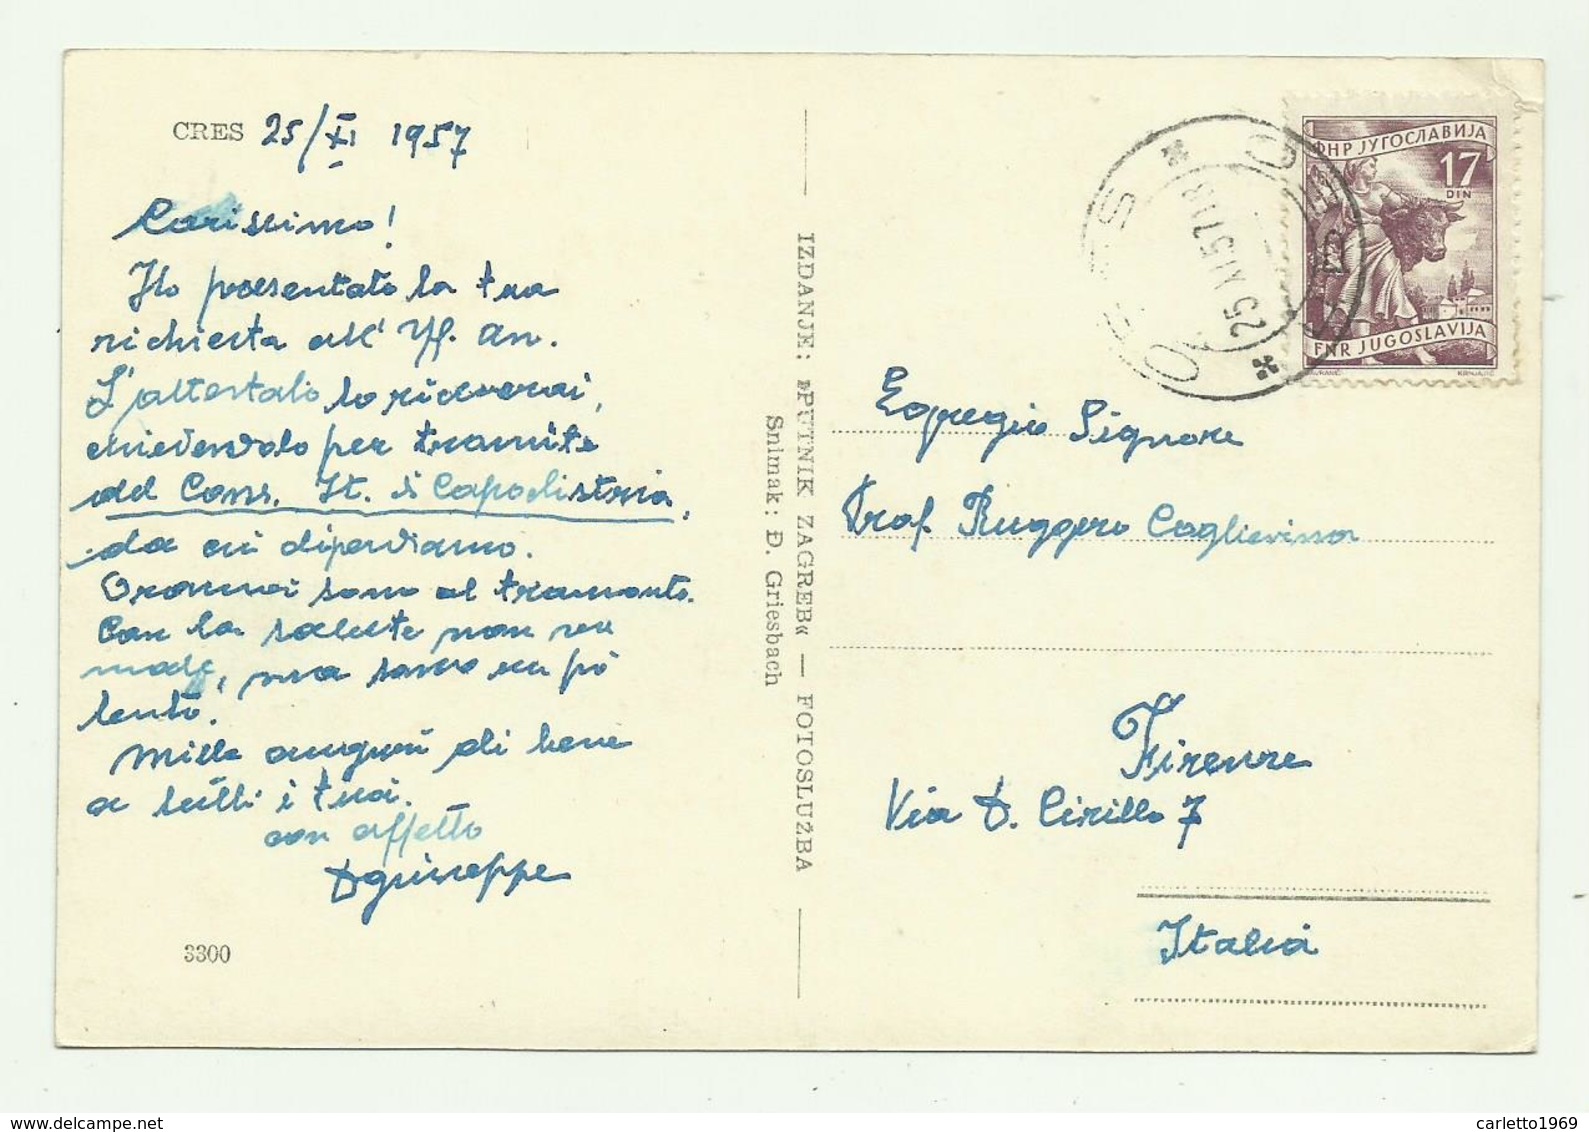 CRES 25/XI 1957
Carissimo!
Ho presentato la tua
richiesta all' Uff. an.
L'attestato lo riceverai,
chiedendolo per tramite
del Cons. It. di Capodistria,
da cui dipendiamo.
Oramai sono al tramonto.
Con la salute non va
male, ma sono un pò
lento.
Mille auguri di bene
a tutti i tuoi.
con affetto
D Giuseppe
3300
IZDANJE: »PUTNIK ZAGREB« — FOTOSLUŽBA
Snimak: Đ. Griesbach
CRES
25 XI 57 18
ФНР ЈУГОСЛАВИЈА
17
DIN
FNR JUGOSLAVIJA
KRNJAJIĆ
Egregio Signore
Prof. Ruggero
Firenze
Via D. Cirillo 7
Italia
carletto1969